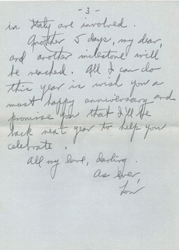 - 3 -
in Italy are involved.
Another 5 days, my dear,
and another milestone will
be reached. All I can do
this year is wish you a
most happy anniversary and
promise you that I'll be
back next year to help you
celebrate.
All my love, darling.
As ever,